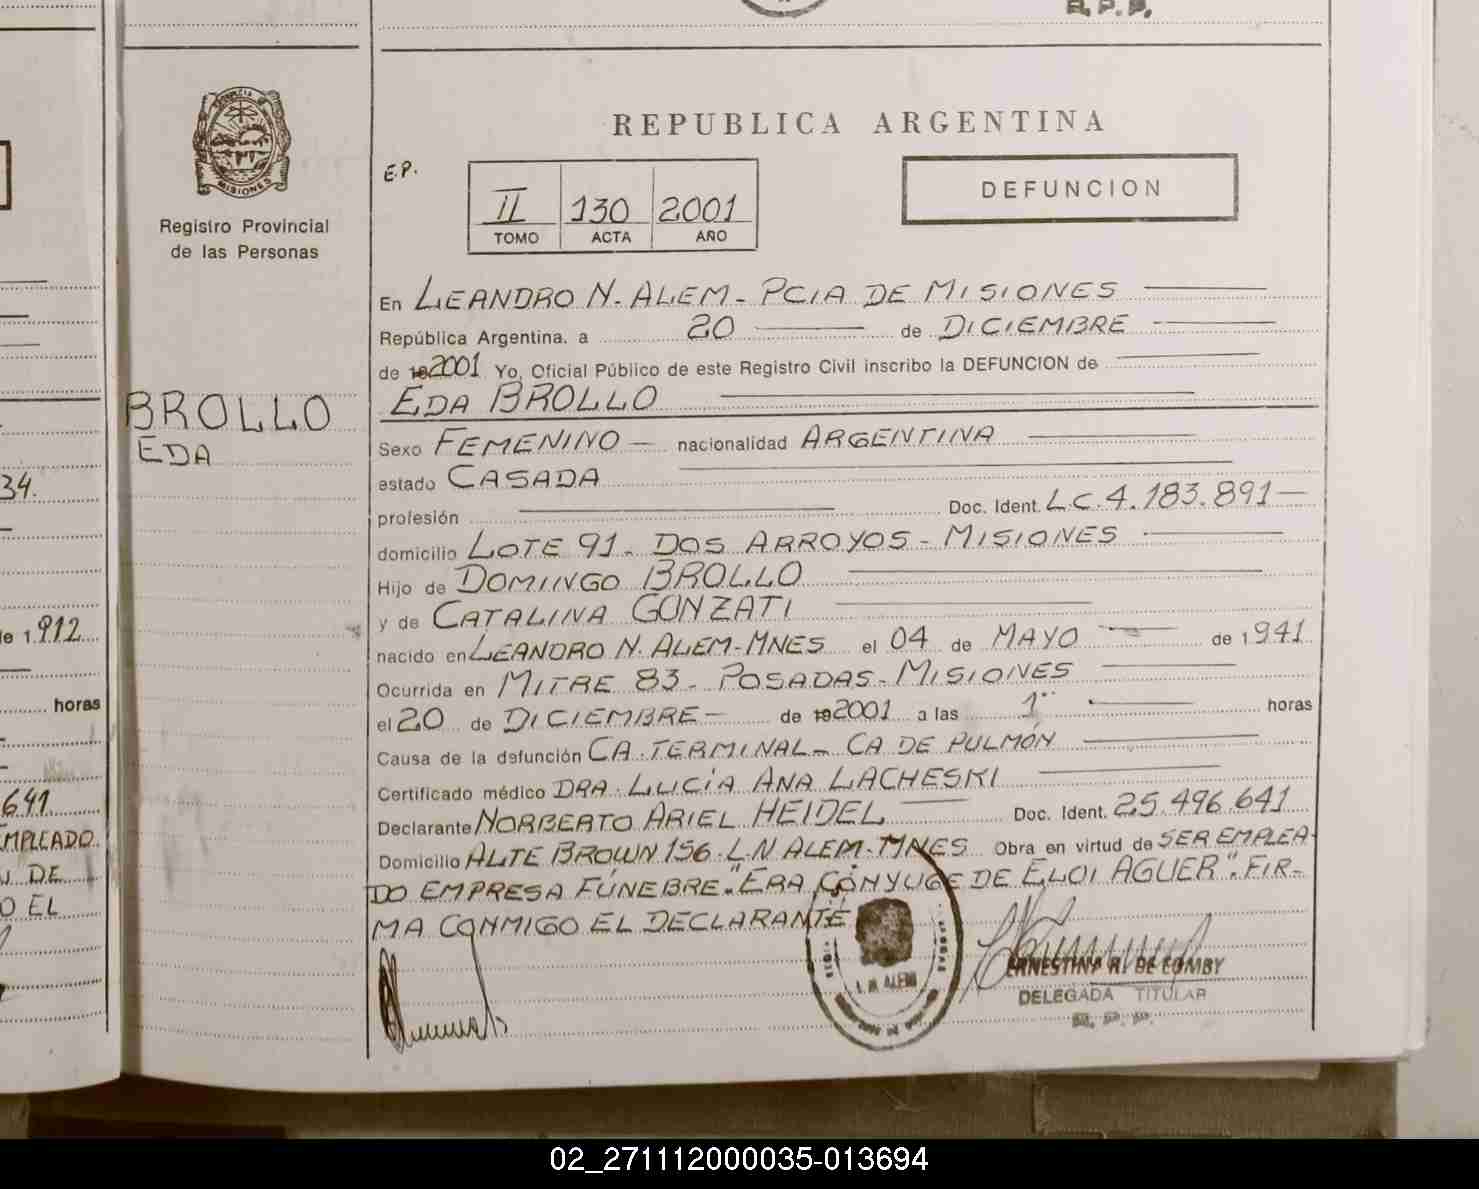 R.P.P.
PROVINCIA DE
MISIONES
Registro Provincial
de las Personas
REPUBLICA ARGENTINA
E.P.
II 130 2001
TOMO ACTA AÑO
DEFUNCION
En LEANDRO N. ALEM - PCIA DE MISIONES
República Argentina, a 20 de DICIEMBRE
de 192001 Yo, Oficial Público de este Registro Civil inscribo la DEFUNCION de
EDA BROLLO
BROLLO
EDA
Sexo FEMENINO nacionalidad ARGENTINA
estado CASADA
profesión Doc. Ident. L.C. 4.183.891
domicilio LOTE 91 - DOS ARROYOS - MISIONES
Hijo de DOMINGO BROLLO
y de CATALINA GONZATI
nacido en LEANDRO N. ALEM - MNES el 04 de MAYO de 1941
Ocurrida en MITRE 83 - POSADAS - MISIONES
el 20 de DICIEMBRE de 192001 a las 1 horas
Causa de la defunción CA. TERMINAL - CA DE PULMÓN
Certificado médico DRA. LUCÍA ANA LACHESKI
Declarante NORBERTO ARIEL HEIDEL Doc. Ident. 25.496.641
Domicilio ALTE BROWN 156 - L.N ALEM - MNES Obra en virtud de SER EMPLEA
DO EMPRESA FÚNEBRE. "ERA CÓNYUGE DE ELOI AGUER". FIR-
MA CONMIGO EL DECLARANTE
L. N. ALEM
ERNESTINA R. DE LOMBY
DELEGADA TITULAR
R. P. P.
34.
de 1.912
horas
641
EMPLEADO
N DE
O EL
02_271112000035-013694